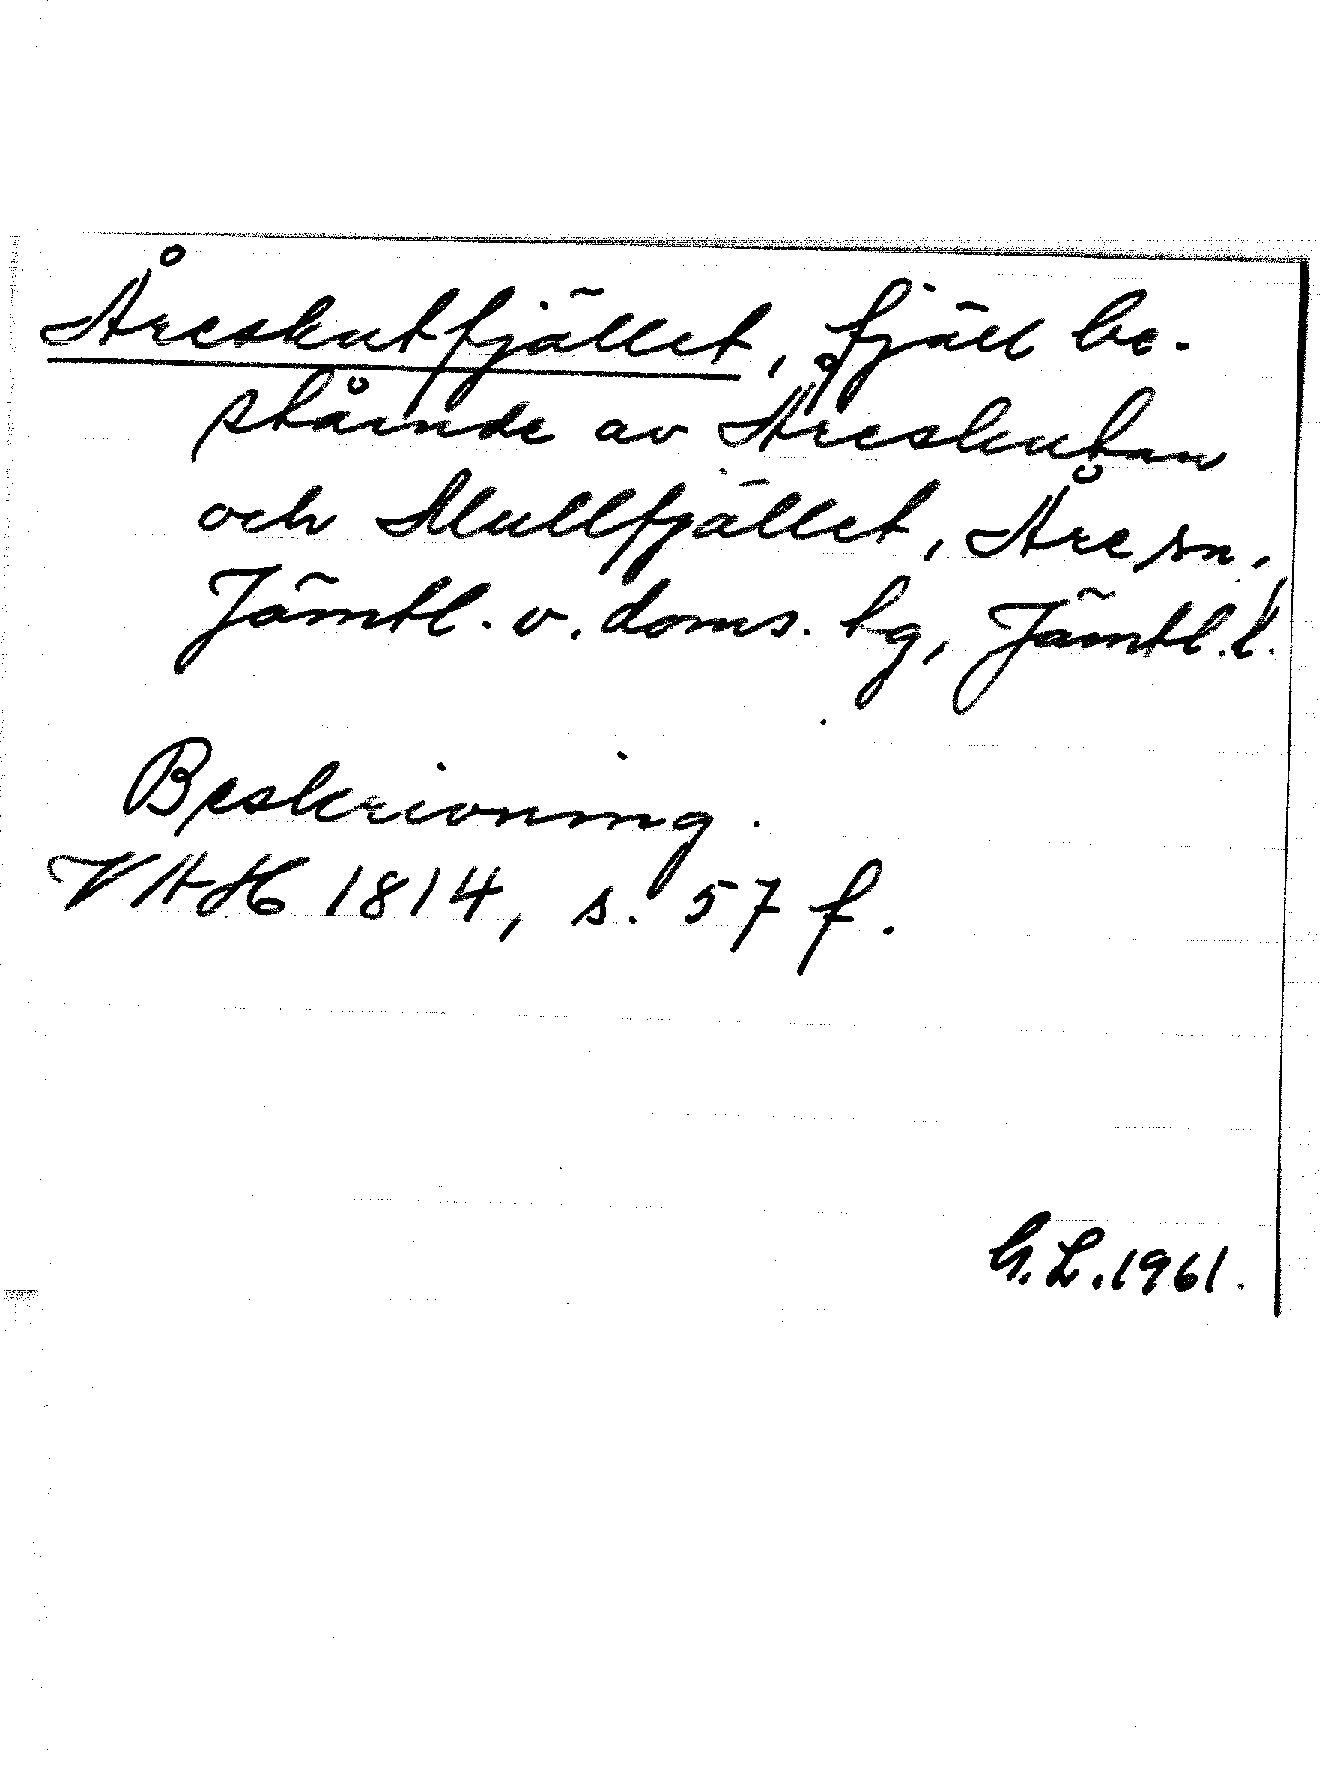 Åreskutfjället, fjäll be-
stående av Åreskutan
och Mullfjället, Åre sn,
Jämtl. v. doms. tg, Jämtl. l.
Beskrivning.
VAH 1814, s. 57 f.
G. L. 1961.